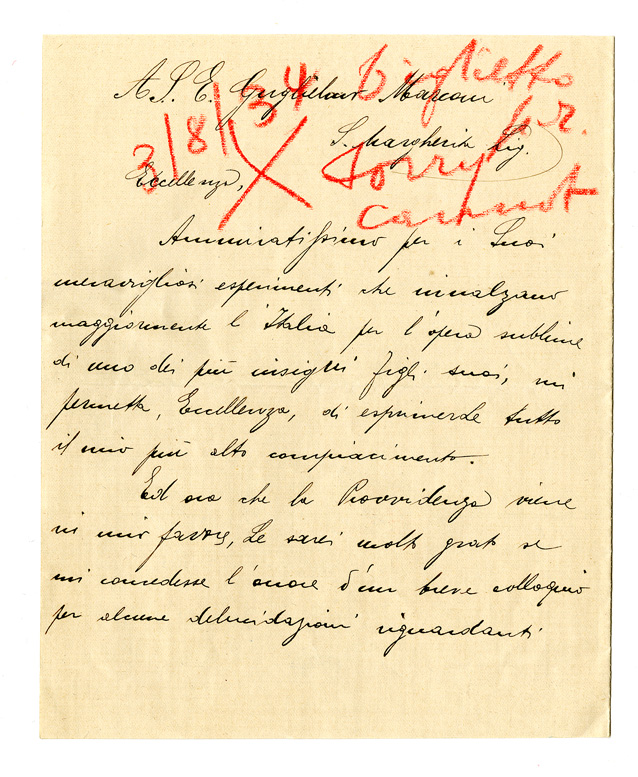 A S. E. Guglielmo Marconi
biglietto
3/8/34
S. Margherita Lig.
X sorry
cannot
Eccellenza,
Ammiratissimo per i Suoi
meravigliosi esperimenti che innalzano
maggiormente l'Italia per l'opera sublime
di uno dei più insigni figli suoi, mi
permetta, Eccellenza, di esprimerLe tutto
il mio più alto compiacimento.
Ed ora che la Provvidenza viene
in mio favore, Le sarei molto grato se
mi concedesse l'onore d'un breve colloquio
per alcune delucidazioni riguardanti